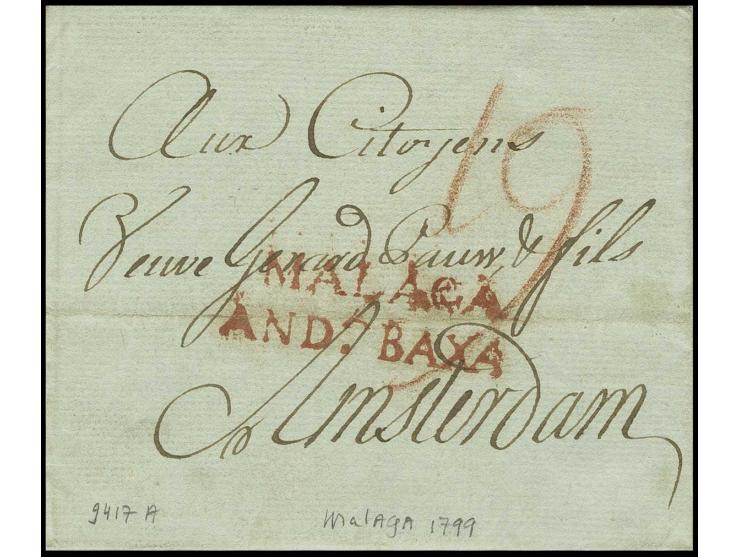 Aux Citoyens
19
Veuve Gerard Pauw & fils
MALAGA
AND? BAXA
Amsterdam
9417 A
Malaga 1799